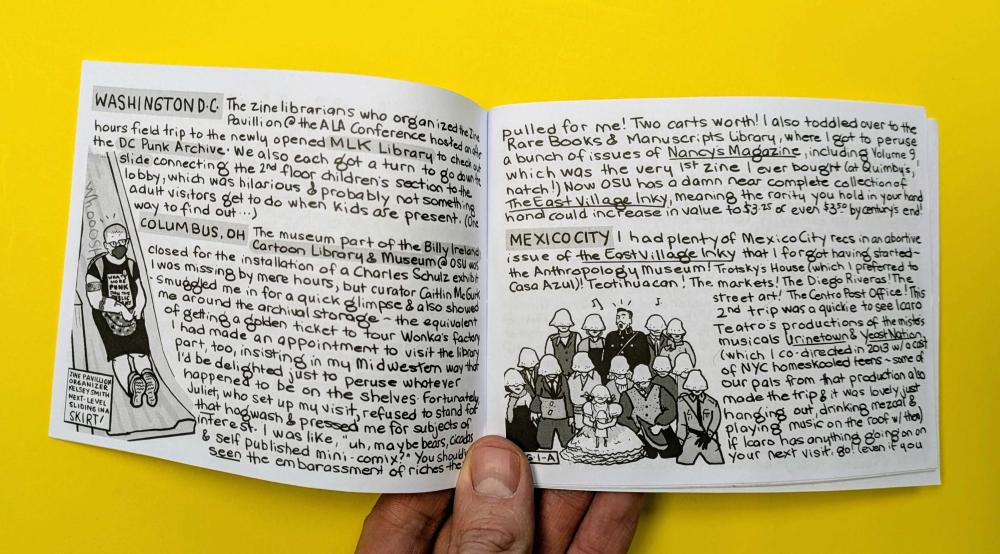 WASHINGTON D.C. The zine librarians who organized the Zine
Pavillion @ the ALA Conference hosted an after
hours field trip to the newly opened MLK Library to check out
the DC Punk Archive. We also each got a turn to go down the
slide connecting the 2nd floor children's section to the
lobby, which was hilarious & probably not something
adult visitors get to do when kids are present. (One
way to find out...)
Whooosh
WHAT'S
MORE
PUNK
THAN THE
PUBLIC
LIBRARY
ZINE PAVILLION
ORGANIZER
KELSEY SMITH
NEXT-LEVEL
SLIDING IN A
SKIRT!
COLUMBUS, OH The museum part of the Billy Ireland
Cartoon Library & Museum @ OSU was
closed for the installation of a Charles Schulz exhibit
I was missing by mere hours, but curator Caitlin McGurk
smuggled me in for a quick glimpse & also showed
me around the archival storage ~ the equivalent
of getting a golden ticket to tour Wonka's factory
I had made an appointment to visit the library
part, too, insisting in my Midwestern way that
I'd be delighted just to peruse whatever
happened to be on the shelves. Fortunately,
Juliet, who set up my visit, refused to stand for
that hogwash & pressed me for subjects of
interest. I was like, "uh, maybe bears, cicadas
& self published mini-comix?" You should
seen the embarassment of riches the
pulled for me! Two carts worth! I also toddled over to the
Rare Books & Manuscripts Library, where I got to peruse
a bunch of issues of Nancy's Magazine, including Volume 9,
which was the very 1st zine I ever bought (at Quimby's,
natch!) Now OSU has a damn near complete collection of
The East Village Inky, meaning the rarity you hold in your hand
hand could increase in value to $3.25 or even $3.50 by century's end!
MEXICO CITY I had plenty of Mexico City recs in an abortive
issue of the East Village Inky that I forgot having started ~
the Anthropology Museum! Trotsky's House (which I preferred to
Casa Azul)! Teotihuacan! The markets! The Diego Riveras! The
street art! The Centro Post Office! This
2nd trip was a quickie to see Icaro
Teatro's productions of the misters
musicals Urinetown & Yeast Nation,
(which I co-directed in 2013 w/ a cast
of NYC homeskooled teens ~ some of
our pals from that production also
made the trip & it was lovely just
hanging out, drinking mezcal &
playing music on the roof w/ them)
If Icaro has anything going on on
your next visit, go! (even if you